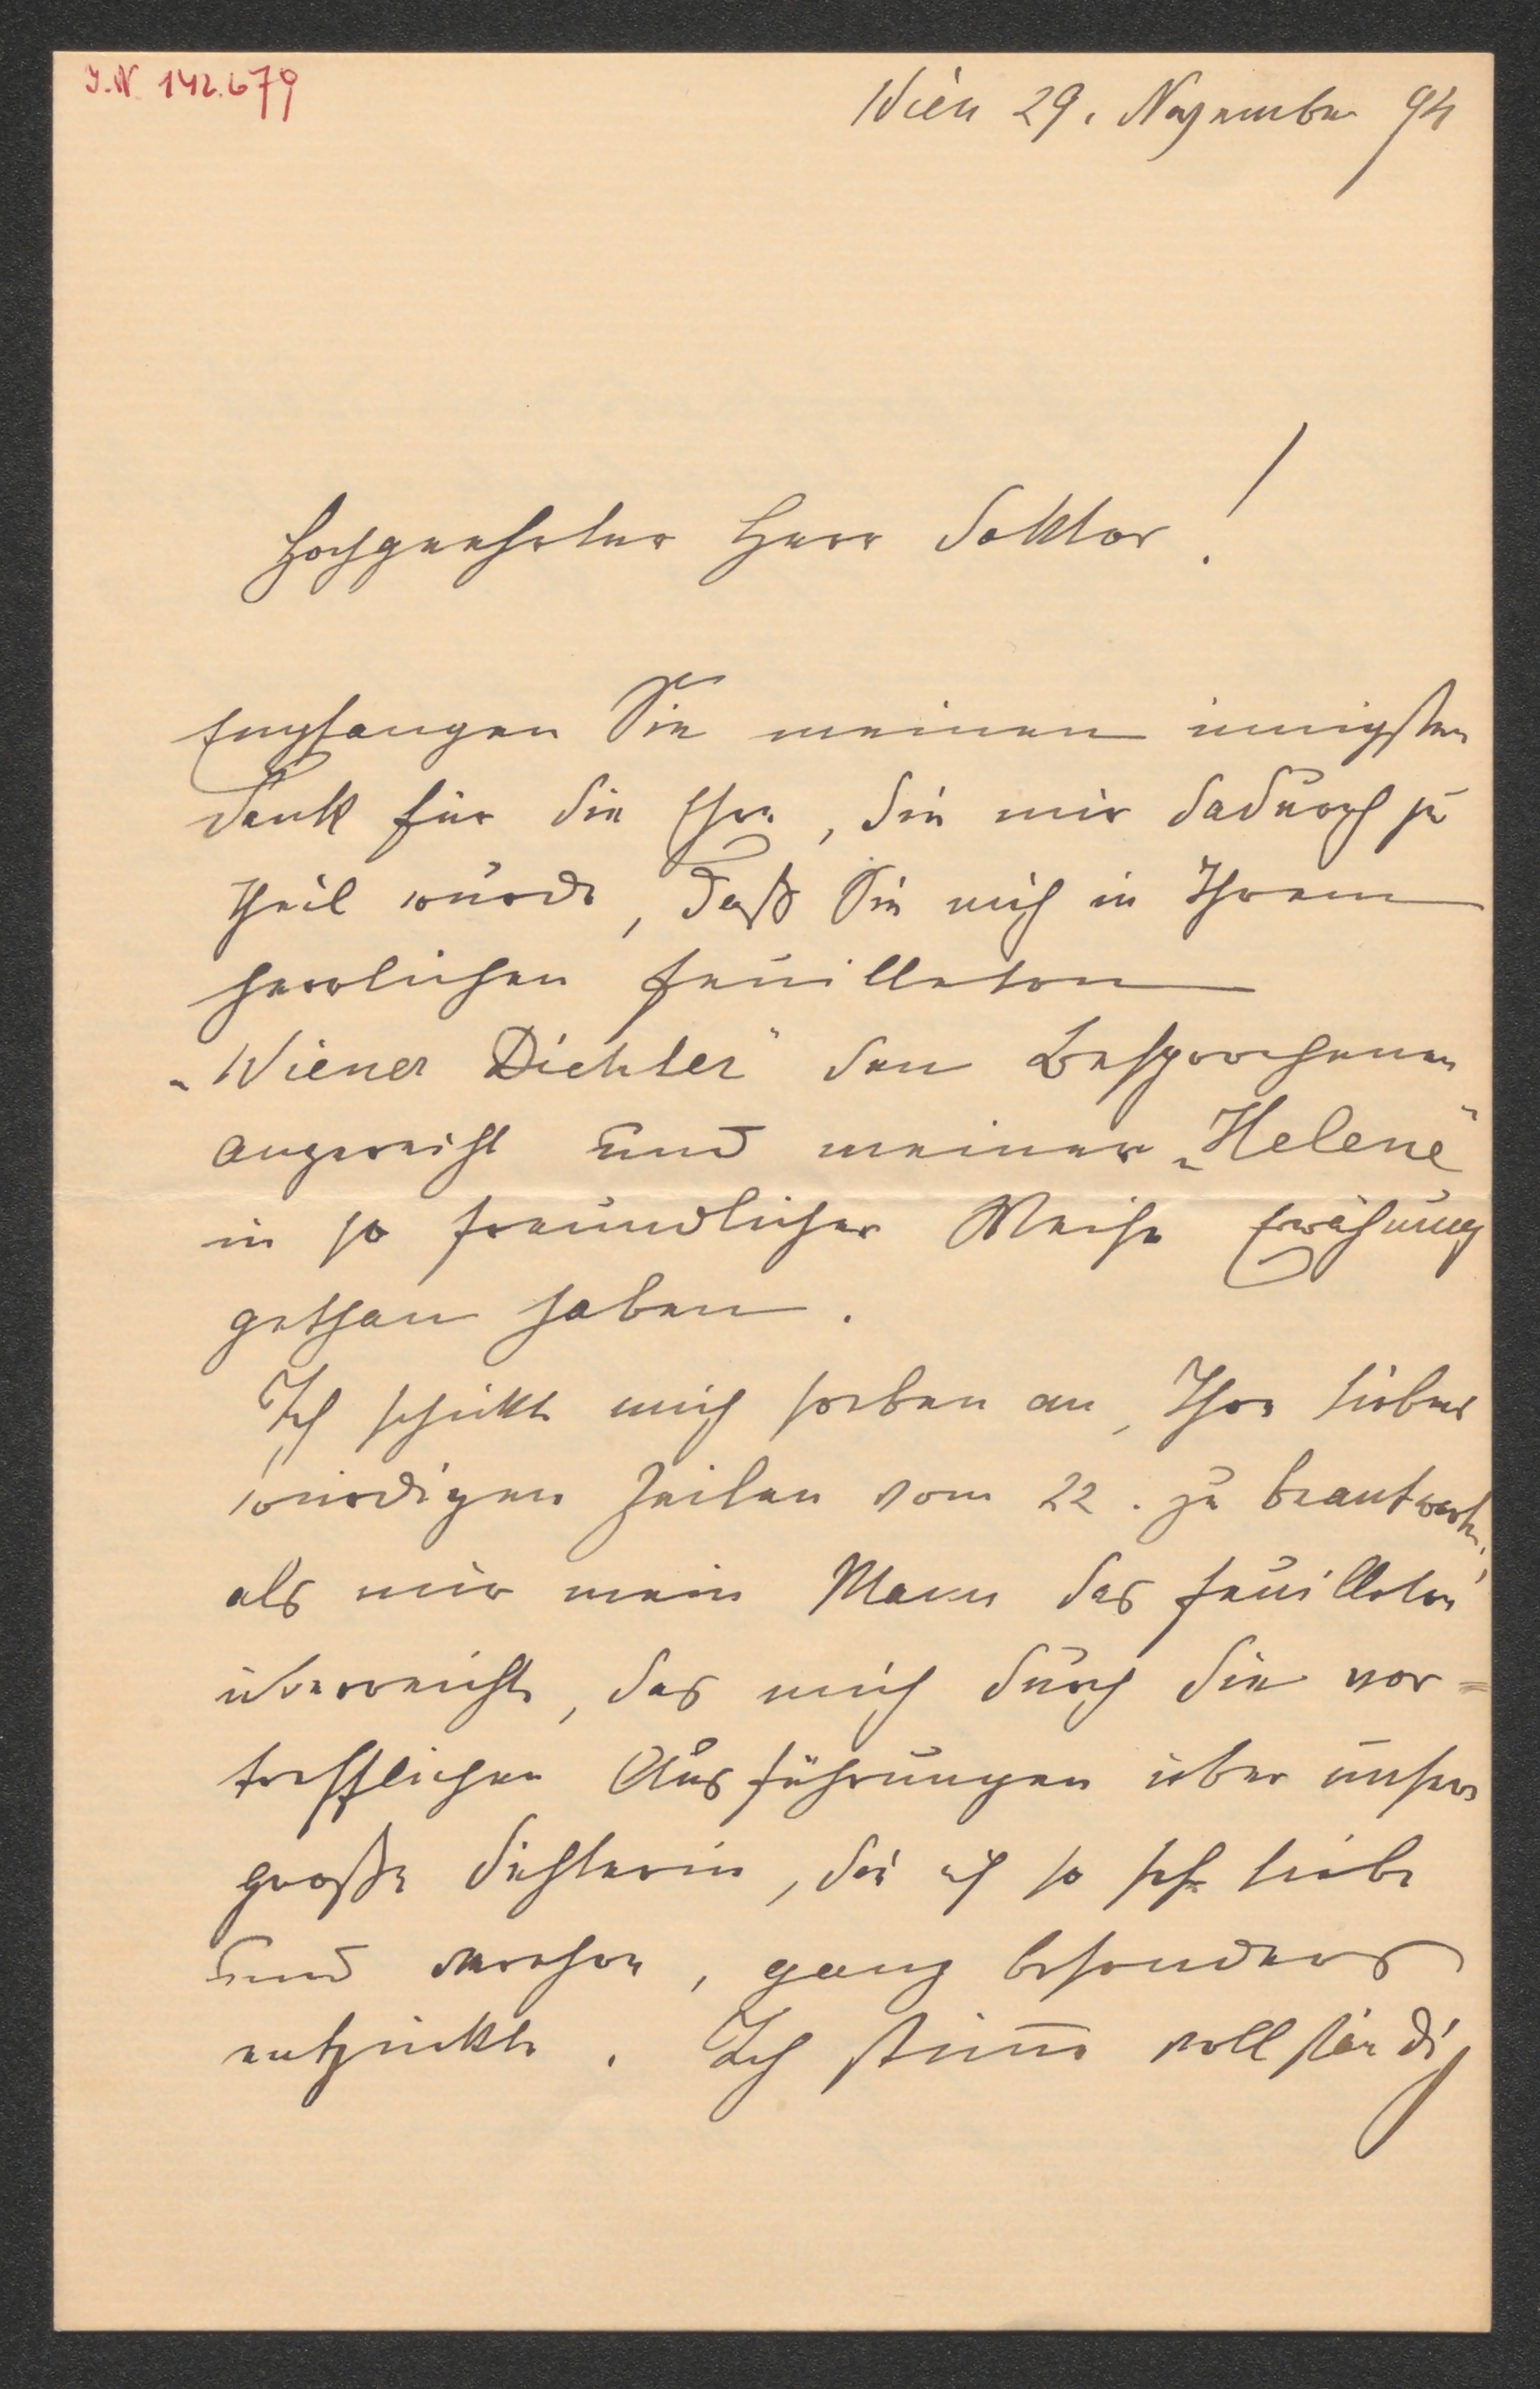 J.N. 142.679
Wien 29. November 94
Hochgeehrter Herr Doktor!
Empfangen Sie meinen innigsten
Dank für die Ehre, die mir dadurch zu
theil wurde, daß Sie mich in Ihrem
herrlichen Feuilleton
„Wiener Dichter" den Besprochenen
angereiht und meiner „Helene"
in so freundlicher Weise Erwähung
gethan haben.
Ich schickte mich soeben an, Ihre liebens
würdigen Zeilen vom 22. zu beantworten,
als mir mein Mann das Feuilleton
überreichte, das mich durch die vor=
trefflichen Ausführungen über unsere
große Dichterin, die ich so sehr liebe
und verehre, ganz besonders
entzückte. Ich stim̅e vollständig